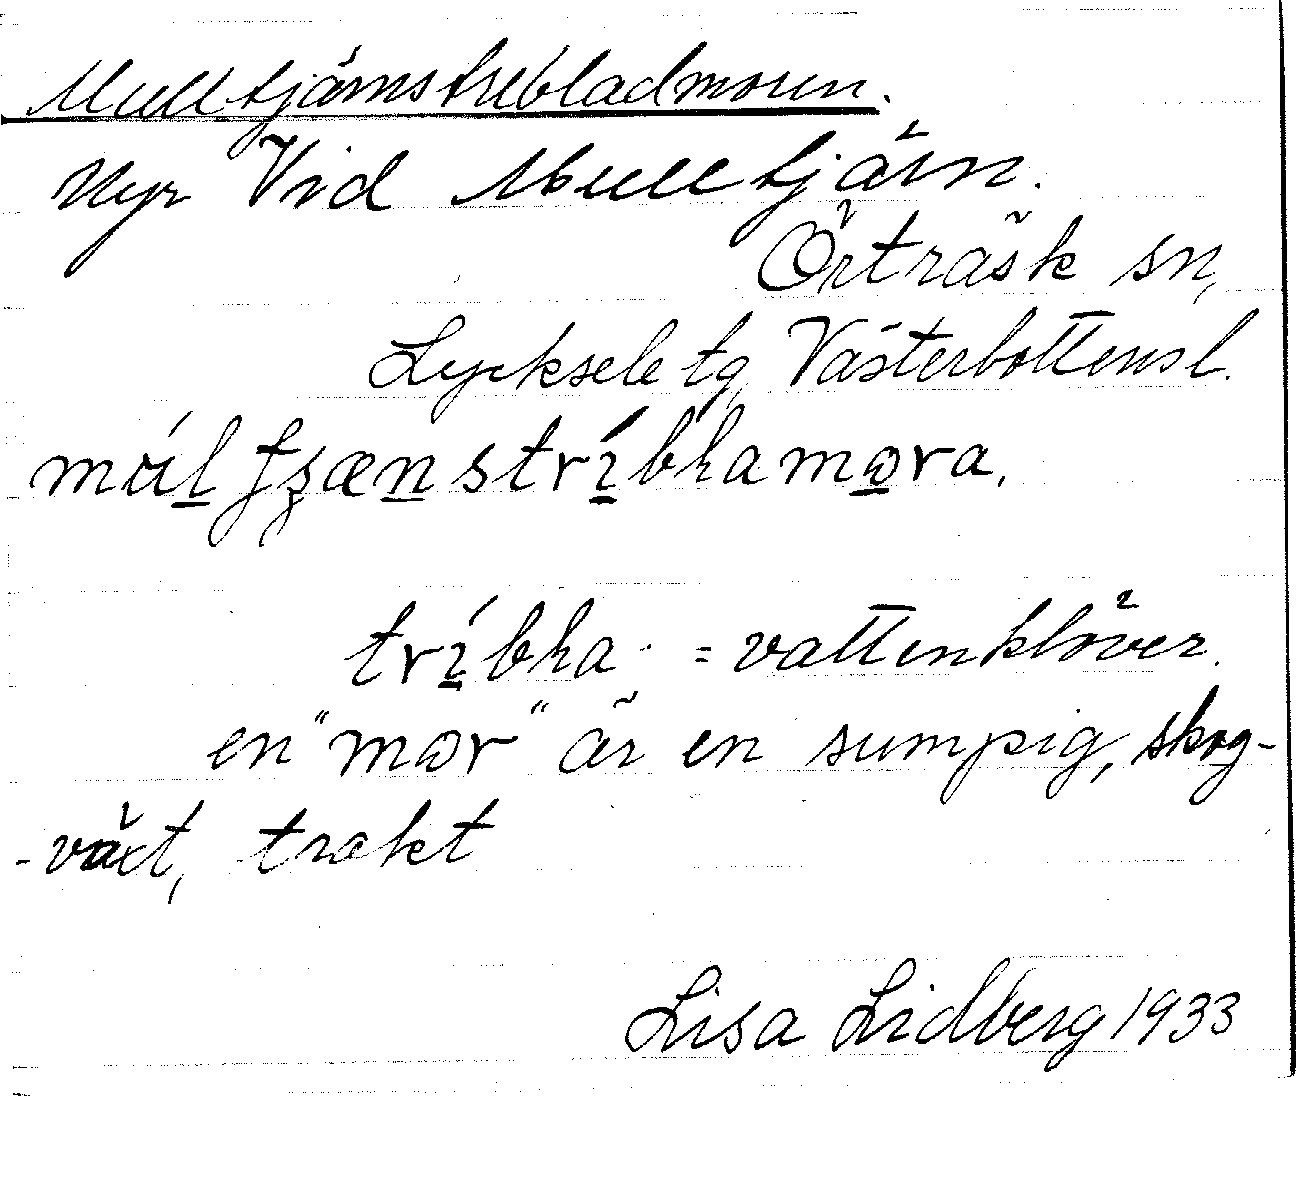 Mulltjärnstrebladmoren.
Myr Vid Mulltjärn.
Örträsk sn,
Lycksele tg, Västerbottensl.
tríbha = vattenklöver.
en "mor" är en sumpig, skog-
-växt, trakt
Lisa Lidberg 1933